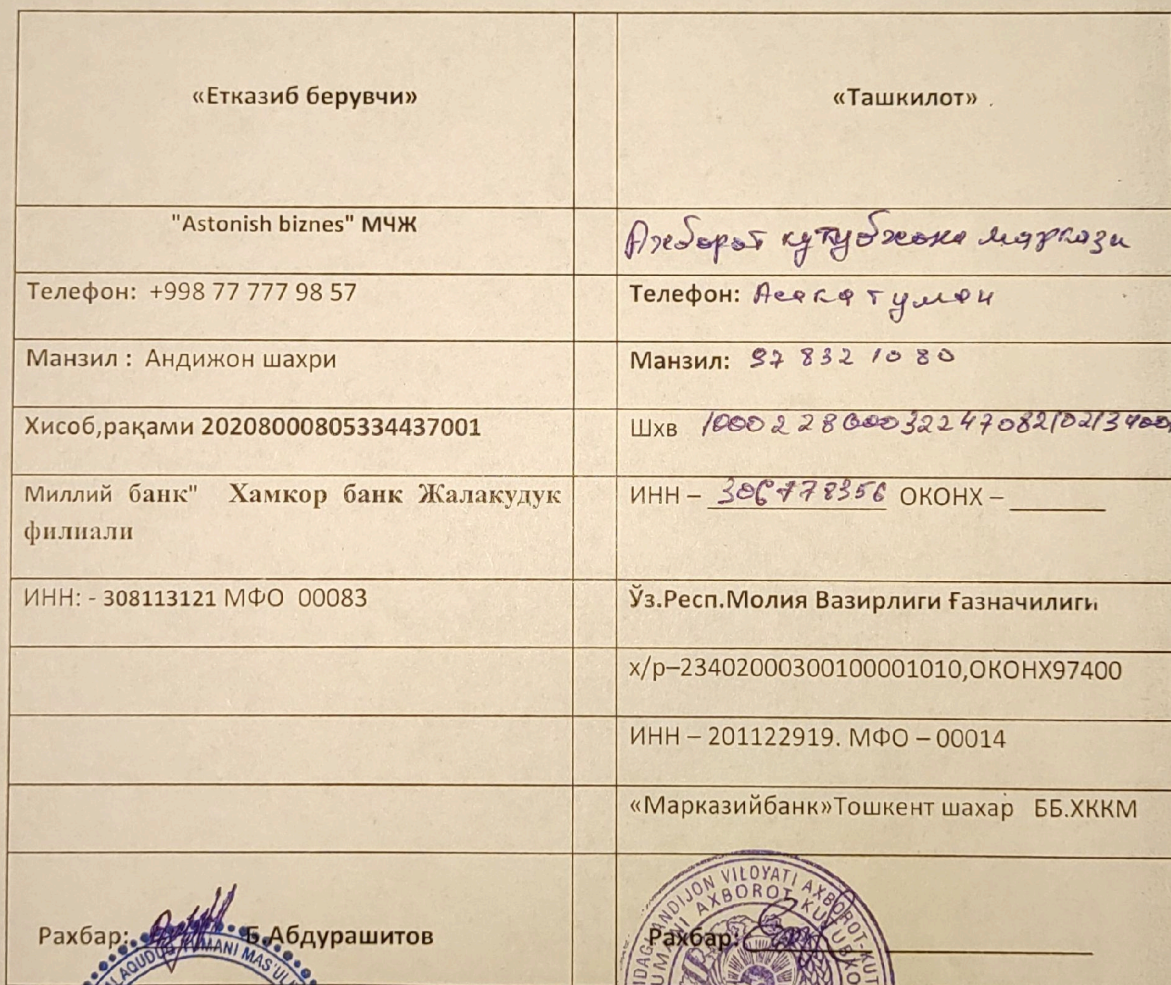 «Етказиб берувчи»
«Ташкилот» .
"Astonish biznes" МЧЖ
Ахборот кутубхона маркази
Телефон: +998 77 777 98 57
Телефон: Асака туман
Манзил : Андижон шахри
Манзил: 97 832 10 80
Хисоб,рақами 20208000805334437001
Шхв 100022860003224708210213400
Миллий банк" Хамкор банк Жалакудук
филиали
ИНН – 306778356 ОКОНХ –
ИНН: - 308113121 МФО 00083
Ўз.Респ.Молия Вазирлиги Ғазначилиги
х/р–23402000300100001010,ОКОНХ97400
ИНН – 201122919. МФО – 00014
«Марказийбанк»Тошкент шахар ББ.ХККМ
Рахбар: Б.Абдурашитов
Рахбар:
ALAQUDUQ TUMANI MAS'ULI
ANDIJON VILOYATI AXBOROT-KUT
UMANI AXBOROT-KUTUBXO